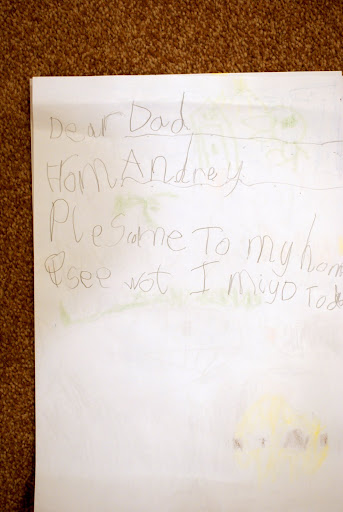 Dear Dad
HomAndrey
PleScome To my hom
see wot I miyD Tod